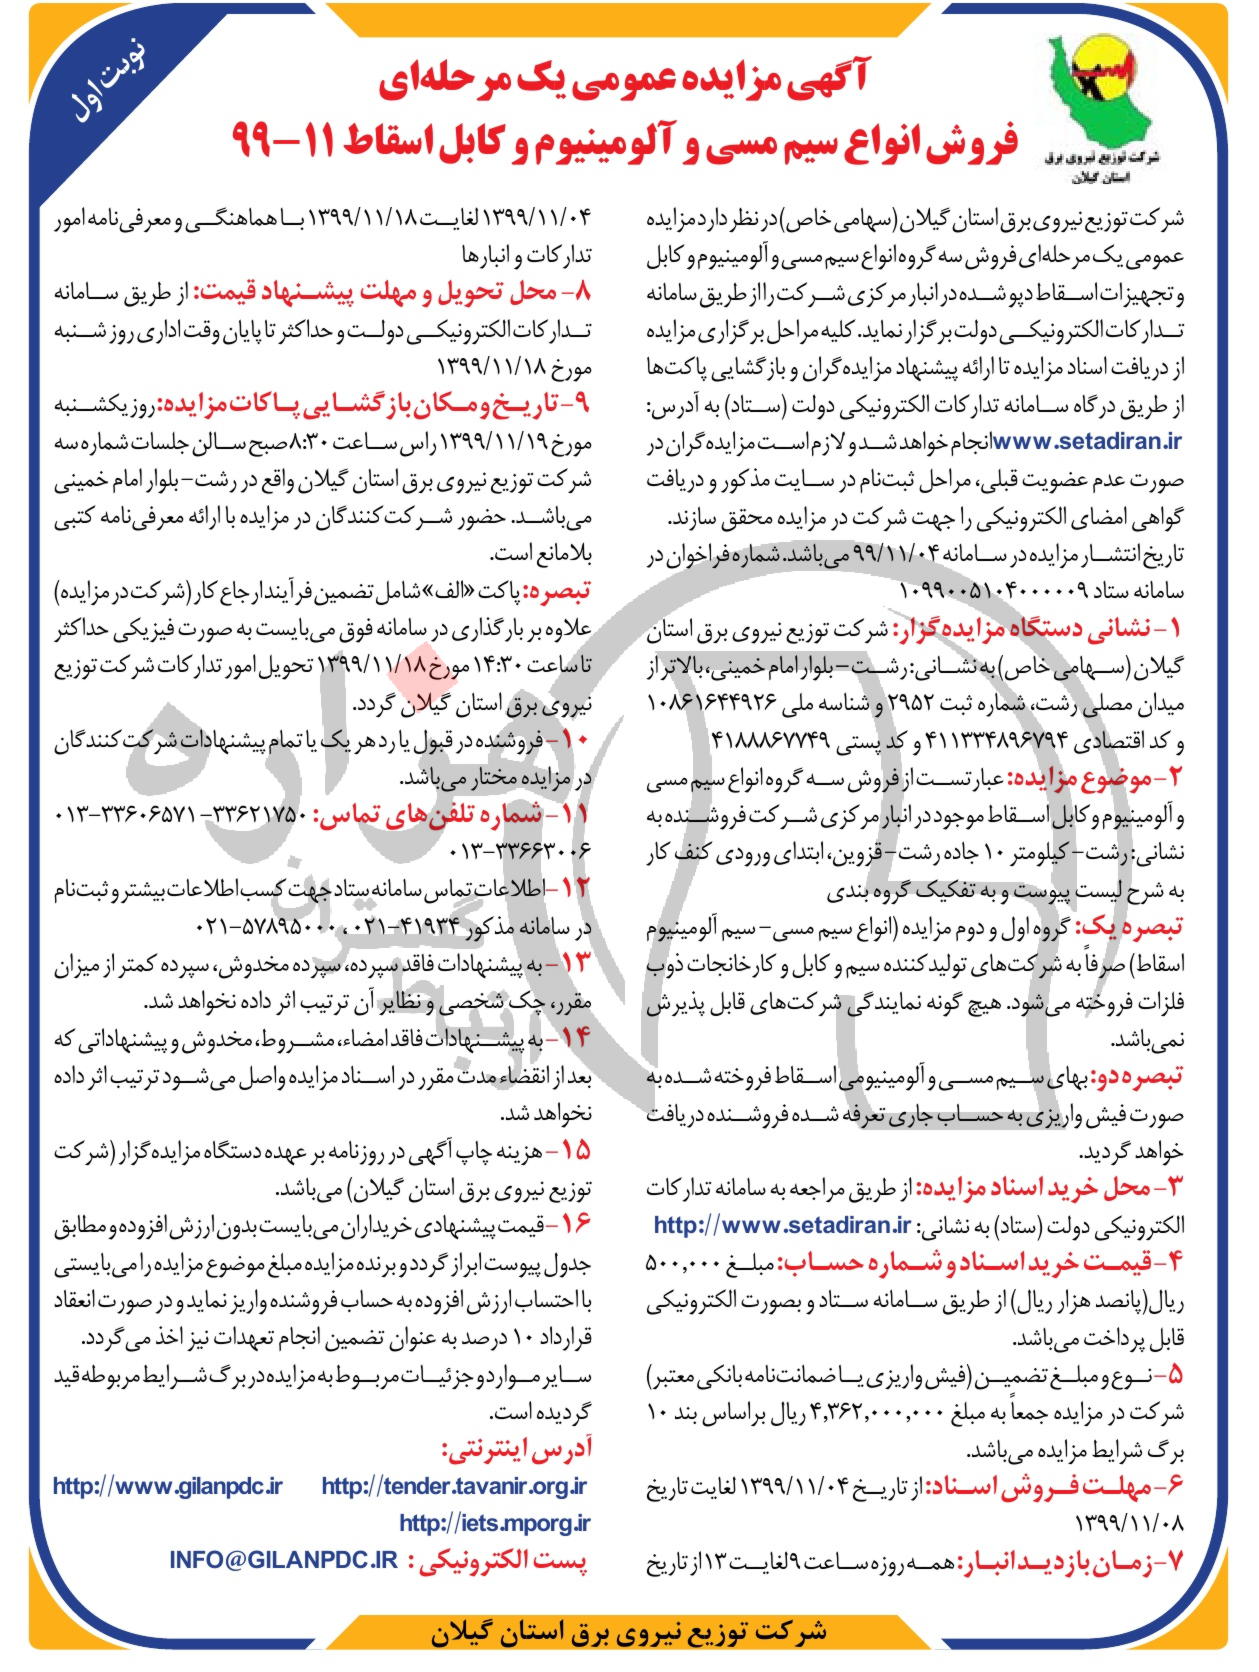 نوبت اول
آگهی مزایده عمومی یک مرحله‌ای
فروش انواع سیم مسی و آلومینیوم و کابل اسقاط ۱۱-۹۹
شرکت توزیع نیروی برق
استان گیلان
شرکت توزیع نیروی برق استان گیلان (سهامی خاص) در نظر دارد مزایده
عمومی یک مرحله‌ای فروش سه گروه انواع سیم مسی و آلومینیوم و کابل
و تجهیزات اسقاط دپو شده در انبار مرکزی شرکت را از طریق سامانه
تدارکات الکترونیکی دولت برگزار نماید. کلیه مراحل برگزاری مزایده
از دریافت اسناد مزایده تا ارائه پیشنهاد مزایده‌گران و بازگشایی پاکت‌ها
از طریق درگاه سامانه تدارکات الکترونیکی دولت (ستاد) به آدرس:
www.setadiran.ir انجام خواهد شد و لازم است مزایده‌گران در
صورت عدم عضویت قبلی، مراحل ثبت‌نام در سایت مذکور و دریافت
گواهی امضای الکترونیکی را جهت شرکت در مزایده محقق سازند.
تاریخ انتشار مزایده در سامانه ۹۹/۱۱/۰۴ می‌باشد. شماره فراخوان در
سامانه ستاد ۱۰۹۹۰۰۵۱۰۴۰۰۰۰۰۹
۱- نشانی دستگاه مزایده‌گزار: شرکت توزیع نیروی برق استان
گیلان (سهامی خاص) به نشانی: رشت – بلوار امام خمینی، بالاتر از
میدان مصلی رشت، شماره ثبت ۲۹۵۲ و شناسه ملی ۱۰۸۶۱۶۴۴۹۲۶
و کد اقتصادی ۴۱۱۳۳۴۸۹۶۷۹۴ و کد پستی ۴۱۸۸۸۶۷۷۴۹
۲- موضوع مزایده: عبارتست از فروش سه گروه انواع سیم مسی
و آلومینیوم و کابل اسقاط موجود در انبار مرکزی شرکت فروشنده به
نشانی: رشت- کیلومتر ۱۰ جاده رشت-قزوین، ابتدای ورودی کنف کار
به شرح لیست پیوست و به تفکیک گروه بندی
تبصره یک: گروه اول و دوم مزایده (انواع سیم مسی- سیم آلومینیوم
اسقاط) صرفاً به شرکت‌های تولیدکننده سیم و کابل و کارخانجات ذوب
فلزات فروخته می‌شود. هیچ گونه نمایندگی شرکت‌های قابل پذیرش
نمی‌باشد.
تبصره دو: بهای سیم مسی و آلومینیومی اسقاط فروخته شده به
صورت فیش واریزی به حساب جاری تعرفه شده فروشنده دریافت
خواهد گردید.
۳- محل خرید اسناد مزایده: از طریق مراجعه به سامانه تدارکات
الکترونیکی دولت (ستاد) به نشانی: http://www.setadiran.ir
۴- قیمت خرید اسناد و شماره حساب: مبلغ ۵۰۰,۰۰۰
ریال(پانصد هزار ریال) از طریق سامانه ستاد و بصورت الکترونیکی
قابل پرداخت می‌باشد.
۵- نوع و مبلغ تضمین (فیش واریزی یا ضمانت‌نامه بانکی معتبر)
شرکت در مزایده جمعاً به مبلغ ۴,۳۶۲,۰۰۰,۰۰۰ ریال براساس بند ۱۰
برگ شرایط مزایده می‌باشد.
۶- مهلت فروش اسناد: از تاریخ ۱۳۹۹/۱۱/۰۴ لغایت تاریخ
۱۳۹۹/۱۱/۰۸
۷- زمان بازدید انبار: همه روزه ساعت ۹ لغایت ۱۳ از تاریخ
۱۳۹۹/۱۱/۰۴ لغایت ۱۳۹۹/۱۱/۱۸ با هماهنگی و معرفی‌نامه امور
تدارکات و انبارها
۸- محل تحویل و مهلت پیشنهاد قیمت: از طریق سامانه
تدارکات الکترونیکی دولت و حداکثر تا پایان وقت اداری روز شنبه
مورخ ۱۳۹۹/۱۱/۱۸
۹- تاریخ و مکان بازگشایی پاکات مزایده: روز یکشنبه
مورخ ۱۳۹۹/۱۱/۱۹ راس ساعت ۸:۳۰ صبح سالن جلسات شماره سه
شرکت توزیع نیروی برق استان گیلان واقع در رشت-بلوار امام خمینی
می‌باشد. حضور شرکت‌کنندگان در مزایده با ارائه معرفی‌نامه کتبی
بلامانع است.
تبصره: پاکت «الف» شامل تضمین فرآیند ارجاع کار (شرکت در مزایده)
علاوه بر بارگذاری در سامانه فوق می‌بایست به صورت فیزیکی حداکثر
تا ساعت ۱۴:۳۰ مورخ ۱۳۹۹/۱۱/۱۸ تحویل امور تدارکات شرکت توزیع
نیروی برق استان گیلان گردد.
۱۰- فروشنده در قبول یا رد هر یک یا تمام پیشنهادات شرکت‌کنندگان
در مزایده مختار می‌باشد.
۱۱- شماره تلفن‌های تماس: ۳۳۶۲۱۷۵۰- ۳۳۶۰۶۵۷۱-۰۱۳
۰۱۳-۳۳۶۶۳۰۰۶
۱۲- اطلاعات تماس سامانه ستاد جهت کسب اطلاعات بیشتر و ثبت‌نام
در سامانه مذکور ۴۱۹۳۴-۰۲۱ ، ۵۷۸۹۵۰۰۰-۰۲۱
۱۳- به پیشنهادات فاقد سپرده، سپرده مخدوش، سپرده کمتر از میزان
مقرر، چک شخصی و نظایر آن ترتیب اثر داده نخواهد شد.
۱۴- به پیشنهادات فاقد امضاء، مشروط، مخدوش و پیشنهاداتی که
بعد از انقضاء مدت مقرر در اسناد مزایده واصل می‌شود ترتیب اثر داده
نخواهد شد.
۱۵- هزینه چاپ آگهی در روزنامه بر عهده دستگاه مزایده‌گزار (شرکت
توزیع نیروی برق استان گیلان) می‌باشد.
۱۶- قیمت پیشنهادی خریداران می‌بایست بدون ارزش افزوده و مطابق
جدول پیوست ابراز گردد و برنده مزایده مبلغ موضوع مزایده را می‌بایستی
با احتساب ارزش افزوده به حساب فروشنده واریز نماید و در صورت انعقاد
قرارداد ۱۰ درصد به عنوان تضمین انجام تعهدات نیز اخذ می‌گردد.
سایر موارد و جزئیات مربوط به مزایده در برگ شرایط مربوطه قید
گردیده است.
آدرس اینترنتی:
http://www.gilanpdc.ir http://tender.tavanir.org.ir
http://iets.mporg.ir
پست الکترونیکی : INFO@GILANPDC.IR
شرکت توزیع نیروی برق استان گیلان
هزاره
گسترش
ارتباطات